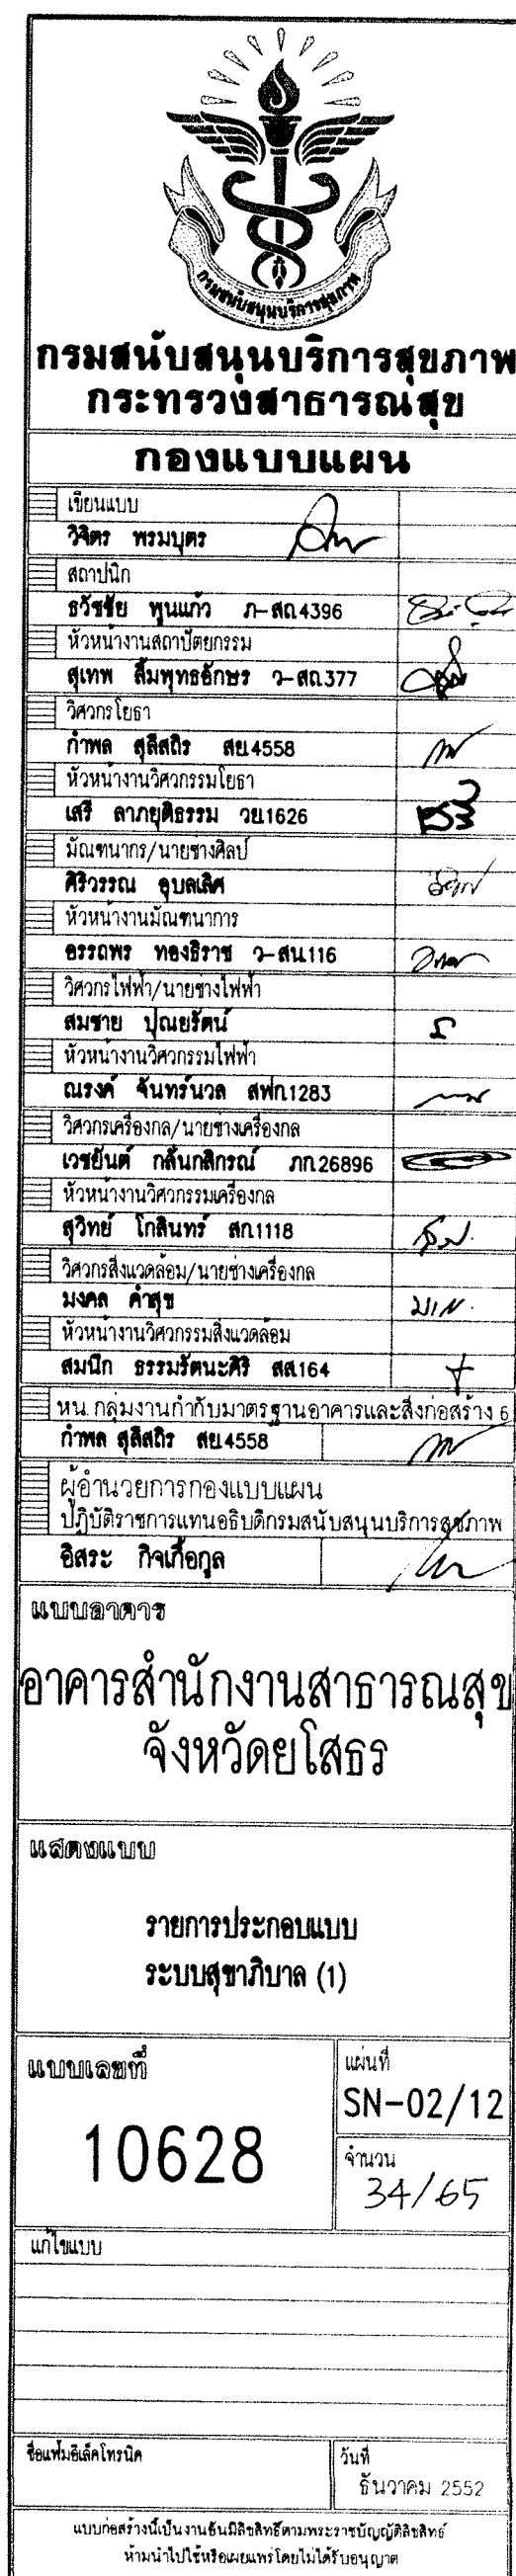 กรมสนับสนุนบริการสุขภาพ
กรมสนับสนุนบริการสุขภาพ
กระทรวงสาธารณสุข
กองแบบแผน
เขียนแบบ
วิจิตร พรมบุตร
สถาปนิก
ธวัชชัย พูนแก้ว ภ-สถ4396
หัวหน้างานสถาปัตยกรรม
สุเทพ ลิ้มพุทธอักษร ว-สถ377
วิศวกรโยธา
กำพล สุลีสถิร สย4558
หัวหน้างานวิศวกรรมโยธา
เสรี ลาภยุติธรรม วย1626
มัณฑนากร/นายช่างศิลป์
ศิริวรรณ อุบลเลิศ
หัวหน้างานมัณฑนาการ
อรรถพร ทองธิราช ว-สน116
วิศวกรไฟฟ้า/นายช่างไฟฟ้า
สมชาย ปุณยรัตน์
หัวหน้างานวิศวกรรมไฟฟ้า
ณรงค์ จันทร์นวล สฟก1283
วิศวกรเครื่องกล/นายช่างเครื่องกล
เวชยันต์ กลั่นกสิกรณ์ ภก26896
หัวหน้างานวิศวกรรมเครื่องกล
สุวิทย์ โกสินทร์ สก1118
วิศวกรสิ่งแวดล้อม/นายช่างเครื่องกล
มงคล คำสุข
หัวหน้างานวิศวกรรมสิ่งแวดล้อม
สมนึก ธรรมรัตนะศิริ สส164
หน.กลุ่มงานกำกับมาตรฐานอาคารและสิ่งก่อสร้าง 6
กำพล สุลีสถิร สย4558
ผู้อำนวยการกองแบบแผน
ปฏิบัติราชการแทนอธิบดีกรมสนับสนุนบริการสุขภาพ
อิสระ กิจเกื้อกูล
แบบอาคาร
อาคารสำนักงานสาธารณสุข
จังหวัดยโสธร
แสดงแบบ
รายการประกอบแบบ
ระบบสุขาภิบาล (1)
แบบเลขที่
10628
แผ่นที่
SN-02/12
จำนวน
34/65
แก้ไขแบบ
ชื่อแฟ้มอิเล็คโทรนิค
วันที่
ธันวาคม 2552
แบบก่อสร้างนี้เป็นงานอันมีลิขสิทธิ์ตามพระราชบัญญัติลิขสิทธ์
ห้ามนำไปใช้หรือเผยแพร่โดยไม่ได้รับอนุญาต